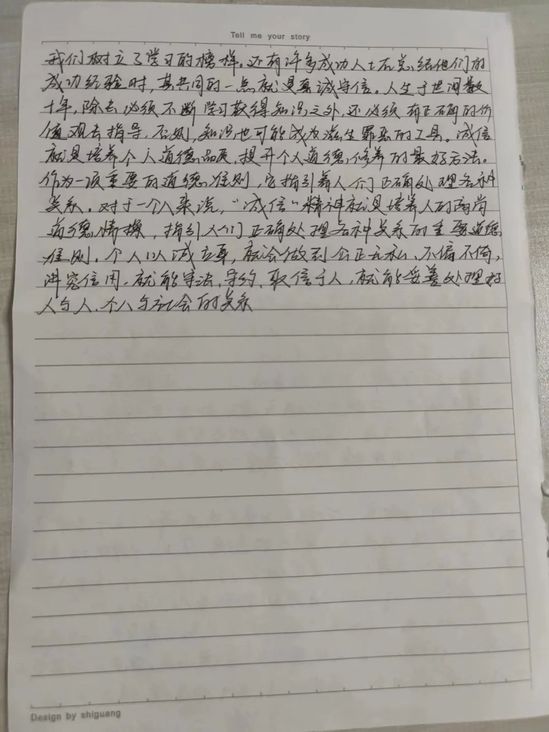 Tell me your story
我们树立了学习的榜样。还有许多成功人士在总结他们的
成功经验时，其共同的一点就是真诚守信。人生于世间数
十年，除去必须不断学习获得知识之外，还必须有正确的价
值观去指导，否则，知识也可能成为滋生罪恶的工具。诚信
就是培养个人道德品质，提升个人道德修养的最好方法。
作为一项重要的道德准则，它指引着人们正确处理各种
关系。对于一个人来说，“诚信”精神就是培养人的高尚
道德情操，指引人们正确处理各种关系的重要道德
准则，个人以诚立身，就会做到公正无私，不偏不倚，
讲究信用，就能守法、守约、取信于人，就能妥善处理好
人与人、个人与社会的关系
Design by shiguang